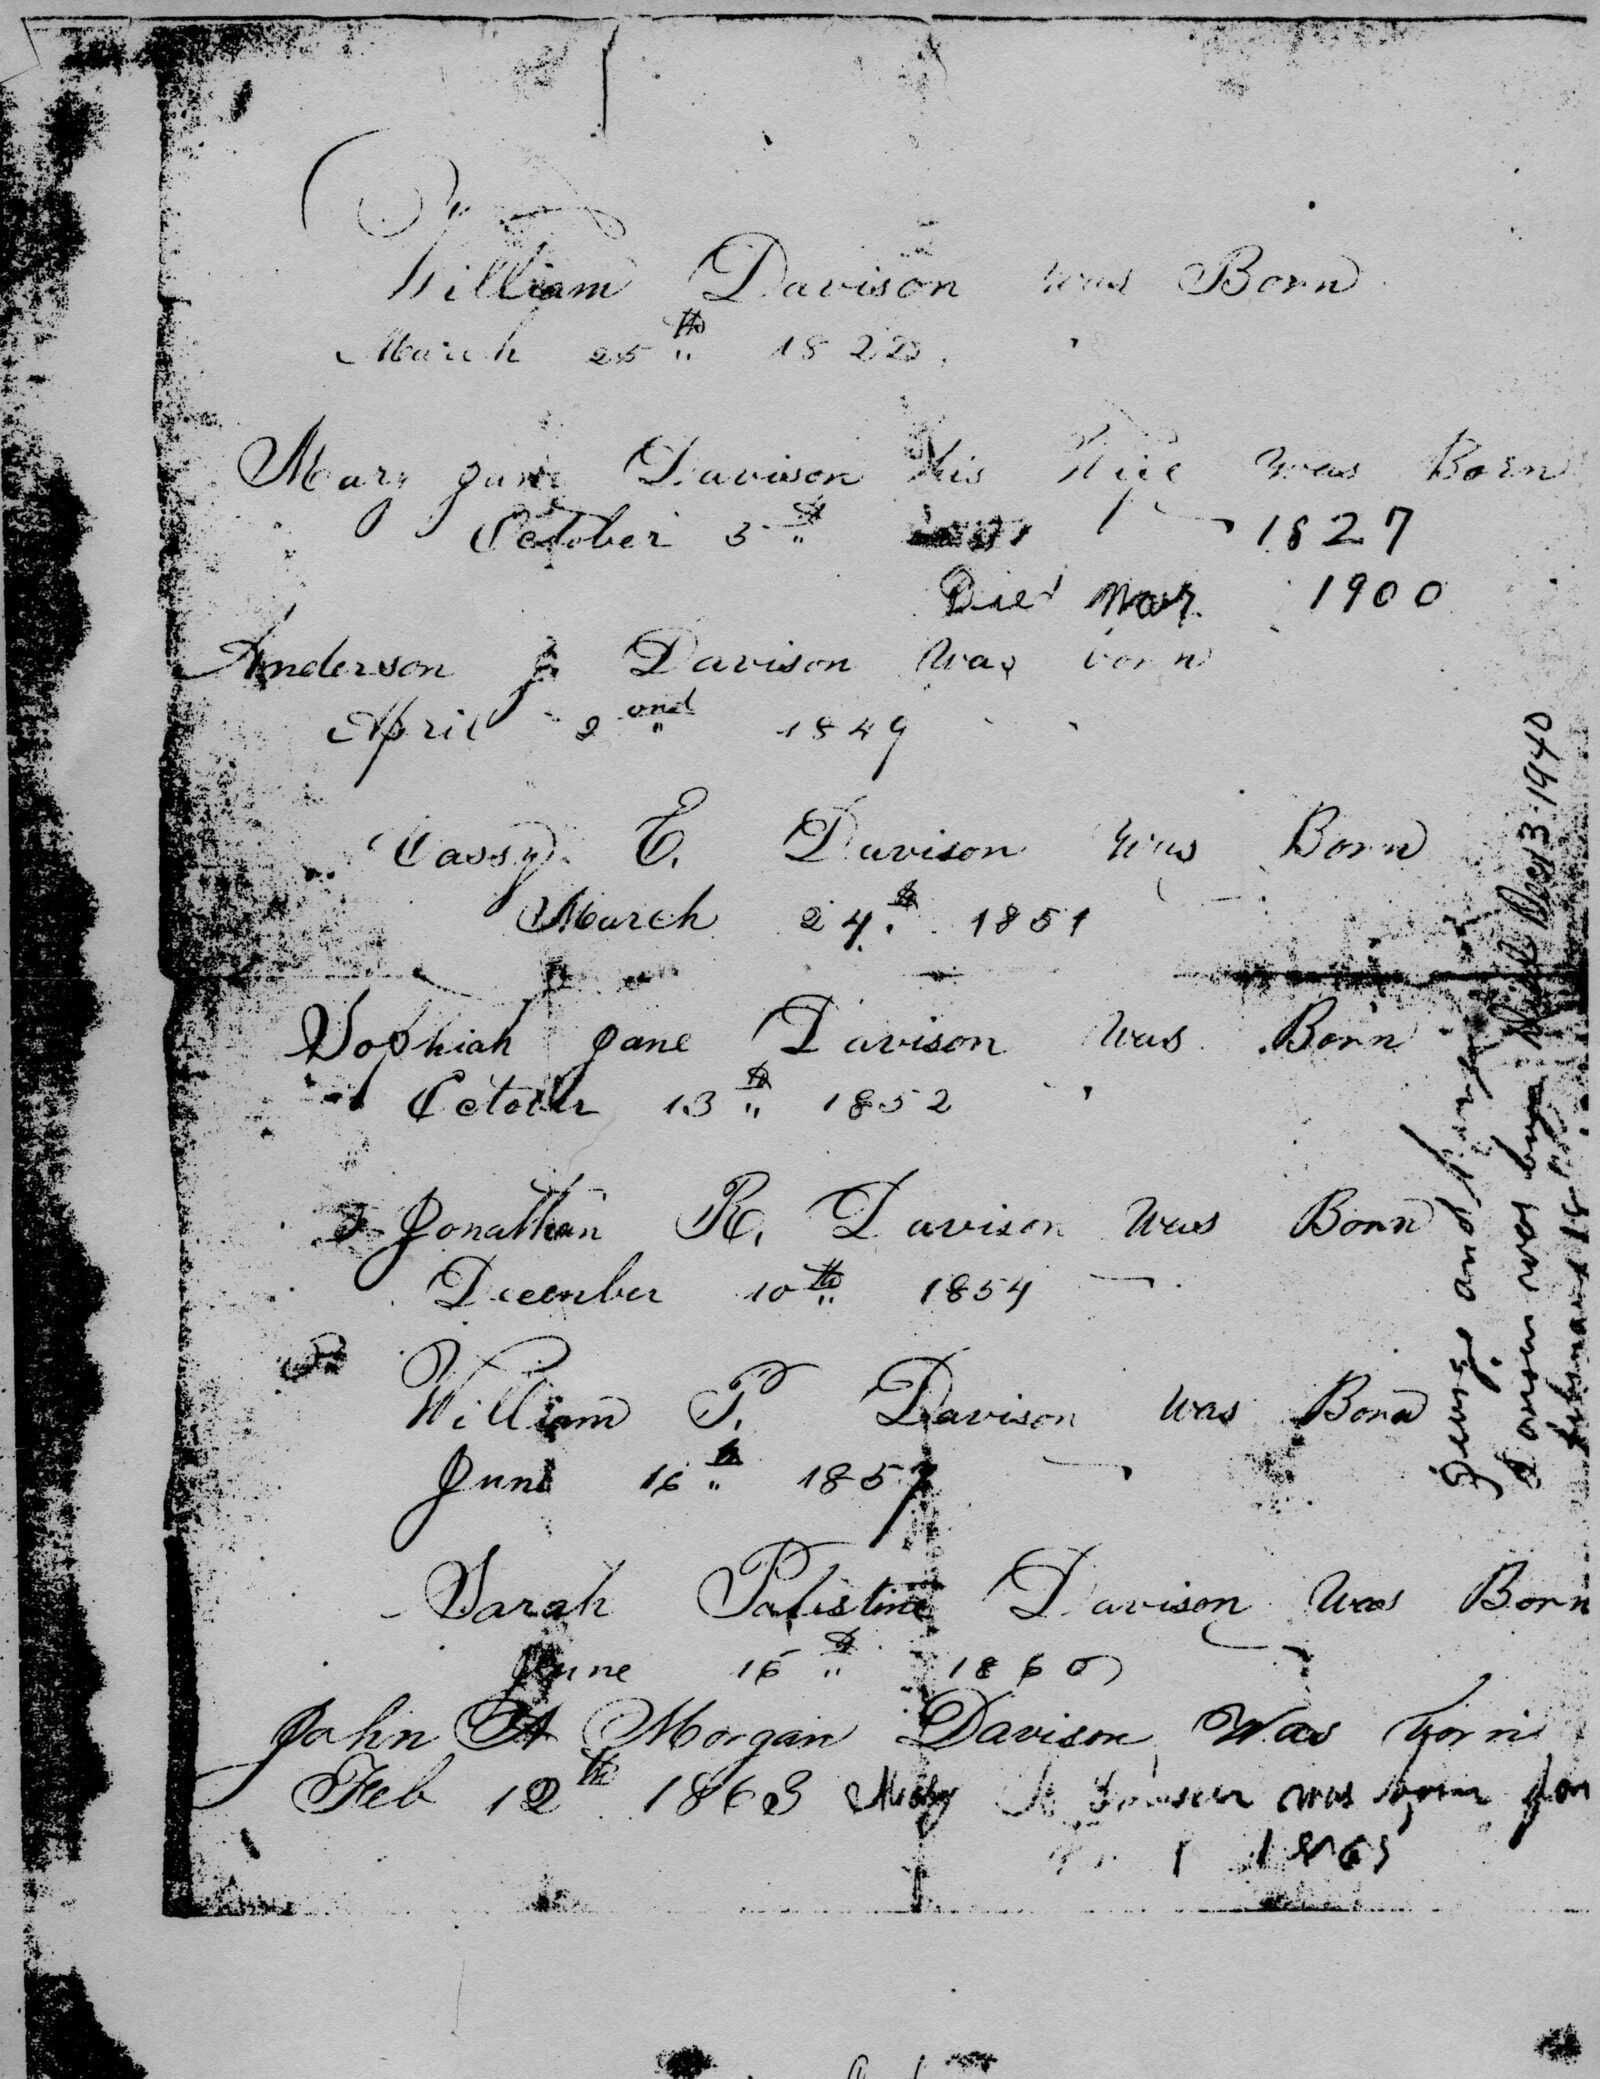 William Davison was Born
March 25th 1822
Mary Jane Davison His Wife was Born
October 5th 1827
Died Mar 1900
Anderson J Davison Was born
April 2ond 1849
Cassy E. Davison was Born
March 24th 1851
Sophiah Jane Davison Was Born
October 13th 1852
Jonathan R. Davison Was Born
December 10th 1854
William P. Davison Was Born
June 16th 1857
Sarah Palistine Davison Was Born
June 16th 1860
John A Morgan Davison Was born
Feb 12th 1863 was born Jan
1
and
Davison was born Died Dec 3 1940